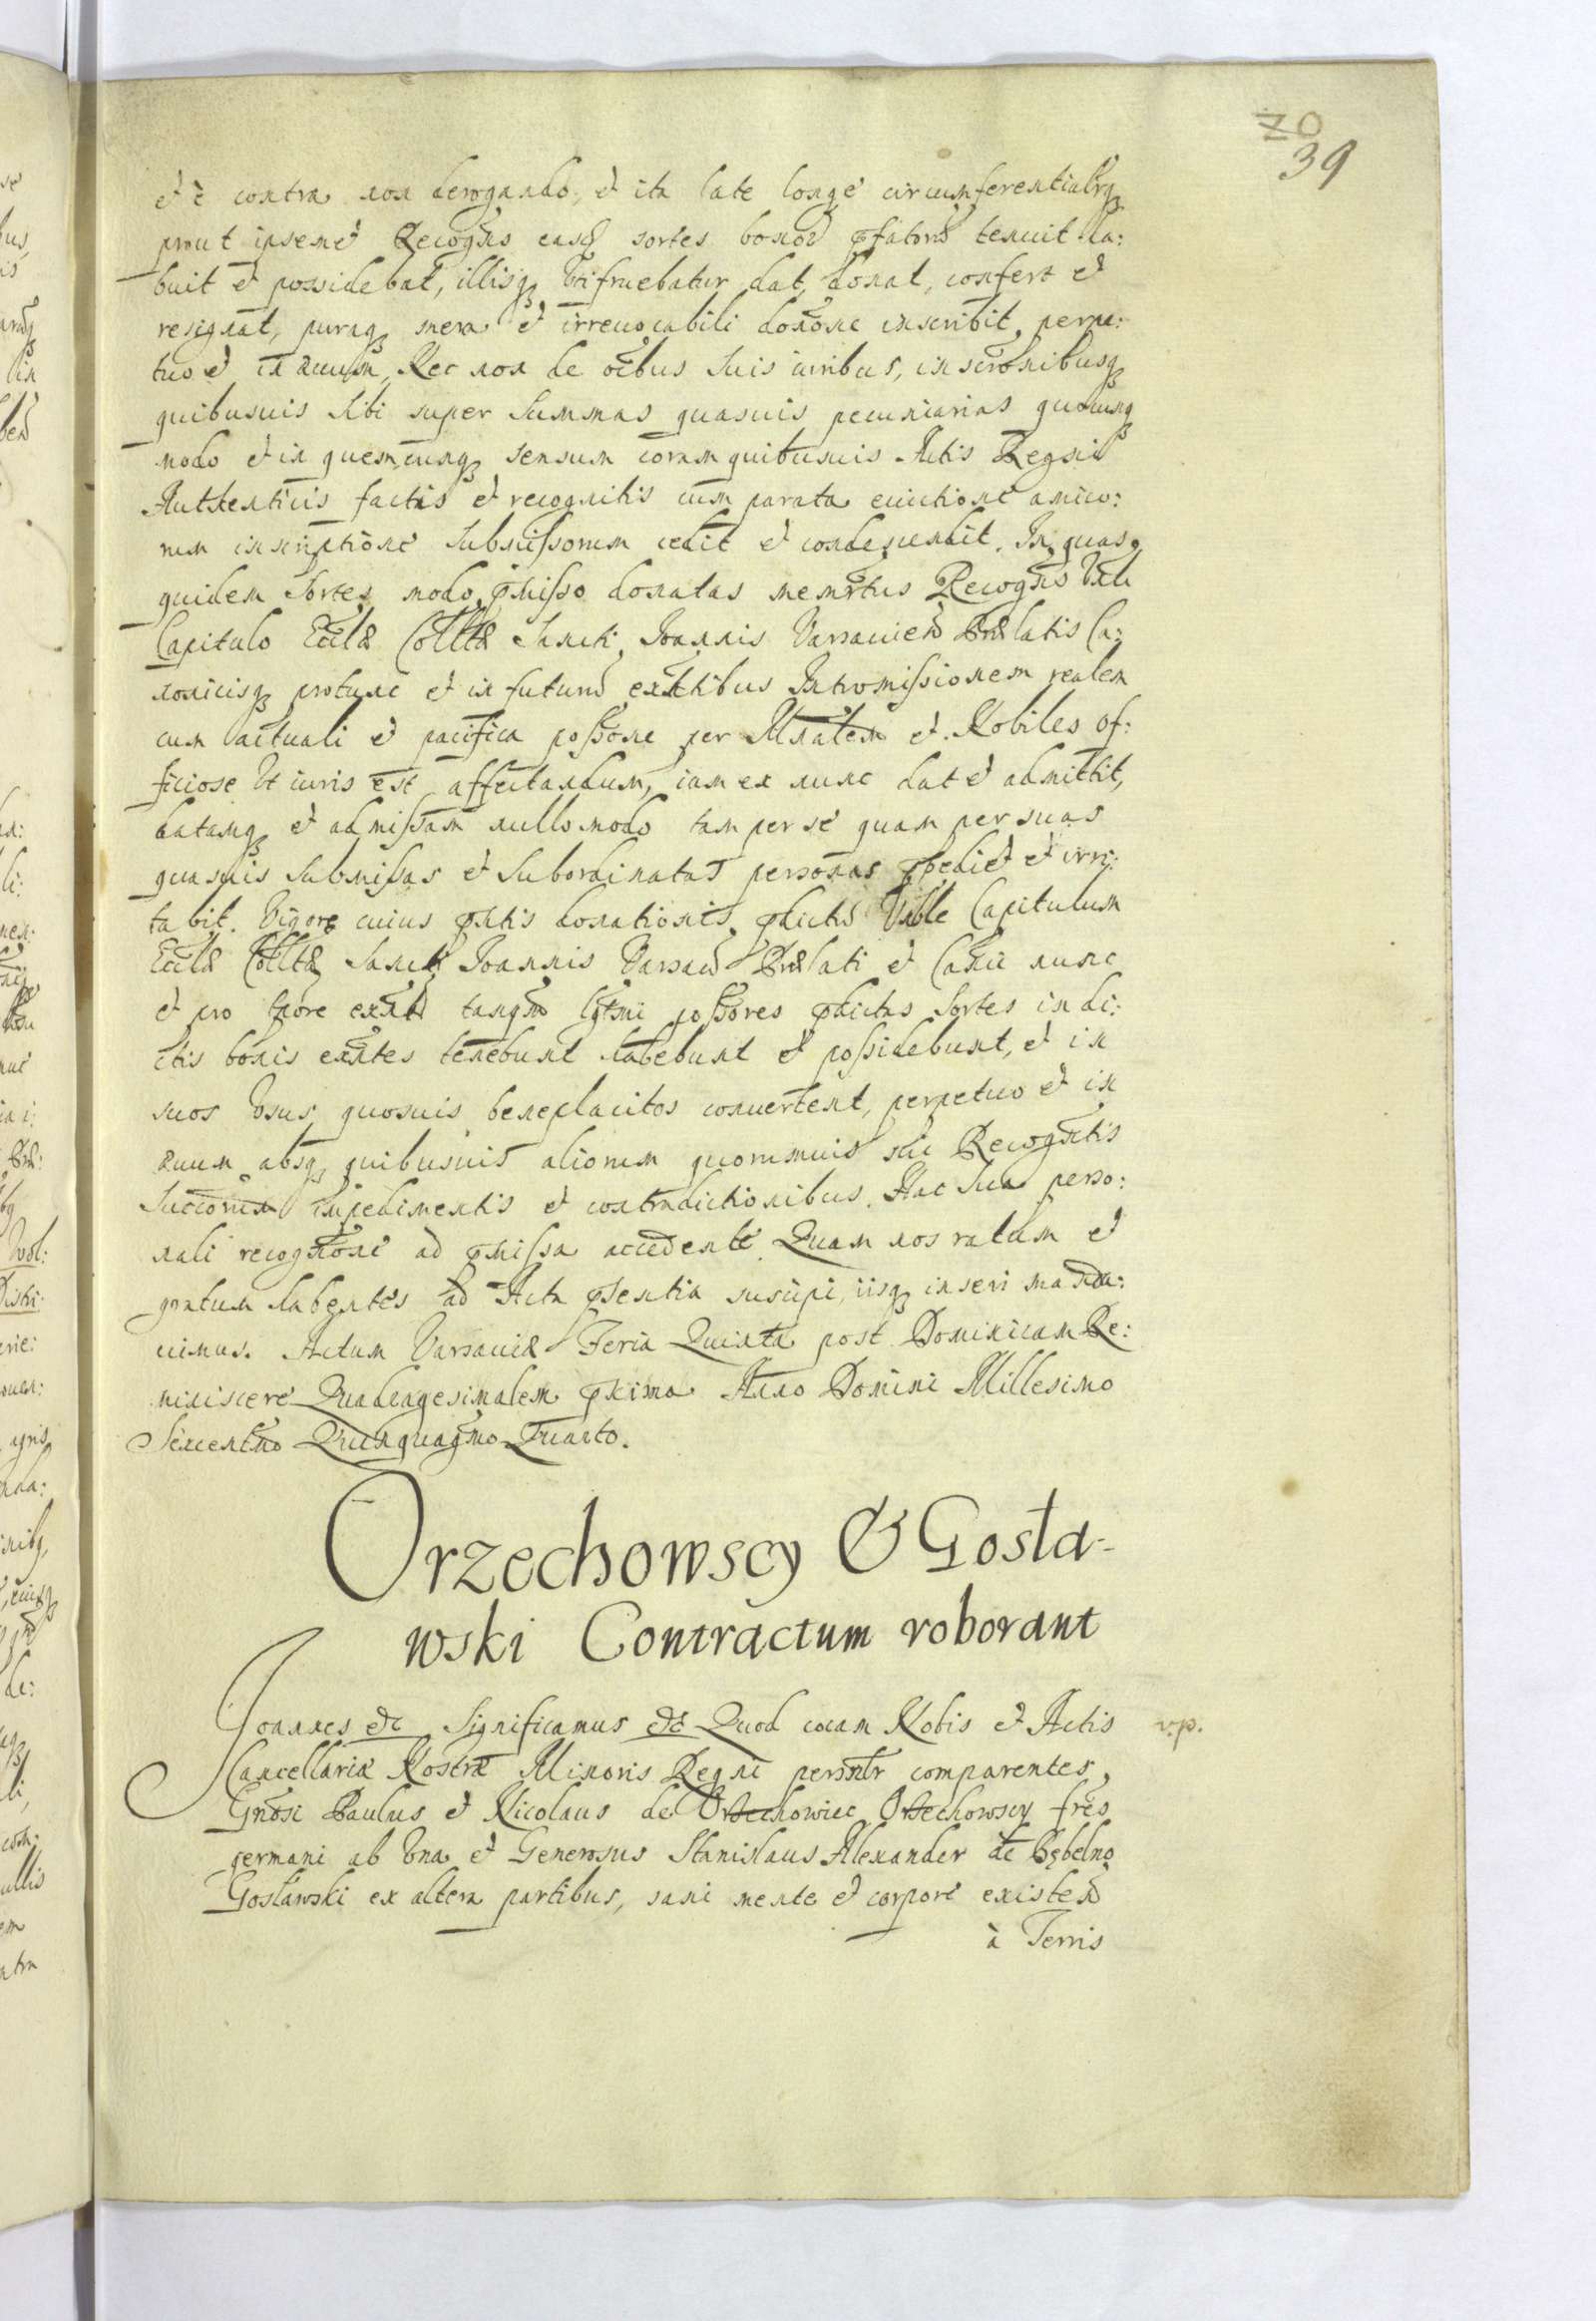 20
39
et è contra non derogando, et ita late longe circumferentialrq
prout ipsemet Recogñs easd sortes bonor pfatorũ tenuit ha:
buit et possidebat, illisq utifruebatur dat, donat, confert et
resignat, puraq mera et irreuocabili donõne inscribit, perpe:
tuo et in æuum, Nec non de oĩbus suis iuribus, inscrõnibusq
quibusuis sibi super summas quasuis pecuniarias quocunq
modo et in quemcunq sensum coram quibusuis Actis Regni
Authenticis factis et recognitis cum parata euictione amico:
rum inscriptione submissorum cedit et condescendit. In quas
quidem sortes modo pmisso donatas memrtus Recogñs Vñli
Capitulo Ecclæ Colltæ Sancti Joannis Varsauieñ Prælatis Ca:
nonicisq protunc et in futurũ exñtibus Intromissionem realem
cum actuali et pacifica possõne per Mñalem et Nobiles of:
ficiose Ut iuris est affectandum, iam ex nunc dat et admittit,
datamq et admissam nullo modo tam per se quam per suas
quasuis submissas et subordinatas personas ppediet et irri:
tabit. Vigore cuius pñtis donationis, pdictũ Vñble Capitulum
Ecclæ Colltæ Sancti Joannis Varsaui Prælati et Canci nunc
et pro tpore exñtes tanqm lgtmi possores pdictas sortes in di:
ctis bonis exñtes tenebunt habebunt et possidebunt, et in
suos usus quosuis beneplacitos conuertent, perpetuo et in
æuum absq quibusuis aliorum quorumuis sui Recogñtis
Succorum impedimentis et contradictionibus. Hac sua perso:
nali recognõne ad pmissa accedente. Quam nos ratum et
gratum habentes ad Acta psentia suscipi, iisq inseri manda:
uimus. Actum Varsauiæ Feria Quinta post Dominicam Re:
miniscere Quadragesimalem pxima Anno Domini Millesimo
Sexcentmo Quinquagmo Quarto.
Orzechowscy & Gosła-
wski Contractum roborant
Joannes etc Significamus etc Quod coram Nobis et Actis
v.p.
Cancellariæ Nostræ Minoris Regni persñlr comparentes,
Gñosi Paulus et Nicolaus de Orzechowiec Orzechowscy frẽs
germani ab una et Generosus Stanislaus Alexander de Bębelno
Gosławski ex altera partibus, sani mente et corpore existeñ
à Terris